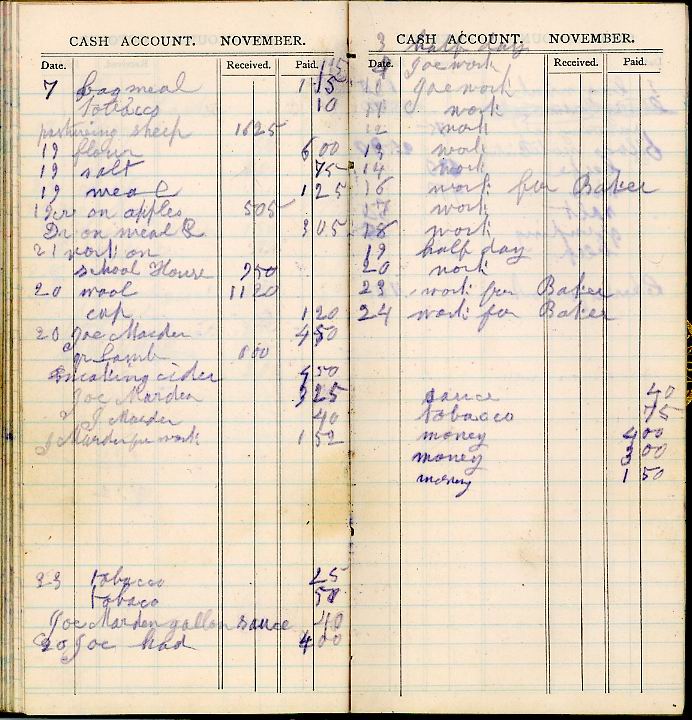 CASH ACCOUNT. NOVEMBER.
Date. Received. Paid.
15
7 bag meal 1 15
tobacco 10
pasturing sheep 16 25
19 flour 6 00
19 salt 75
19 meal 1 25
19 cr on apples 5 05
Dr on meal & 3 05
21 work on
school House 7 50
20 wool 11 20
cap 1 20
20 Joe Marden 4 50
gr lamb 6 00
making cider 4 50
Joe Marden 3 25
J Marden 40
J Marden for work 1 52
23 tobacco 25
tobaco 50
Joe Marden gallon sauce 40
20 Joe had 4 00
CASH ACCOUNT. NOVEMBER.
Date. Received. Paid.
3 half day
4 Joe work
Joe work
11 work
12 work
13 work
14 work
16 work for Baker
17 work
18 work
19 half day
20 work
23 work for Baker
24 work for Baker
sauce 40
tobacco 75
money 4 00
money 3 00
money 1 50